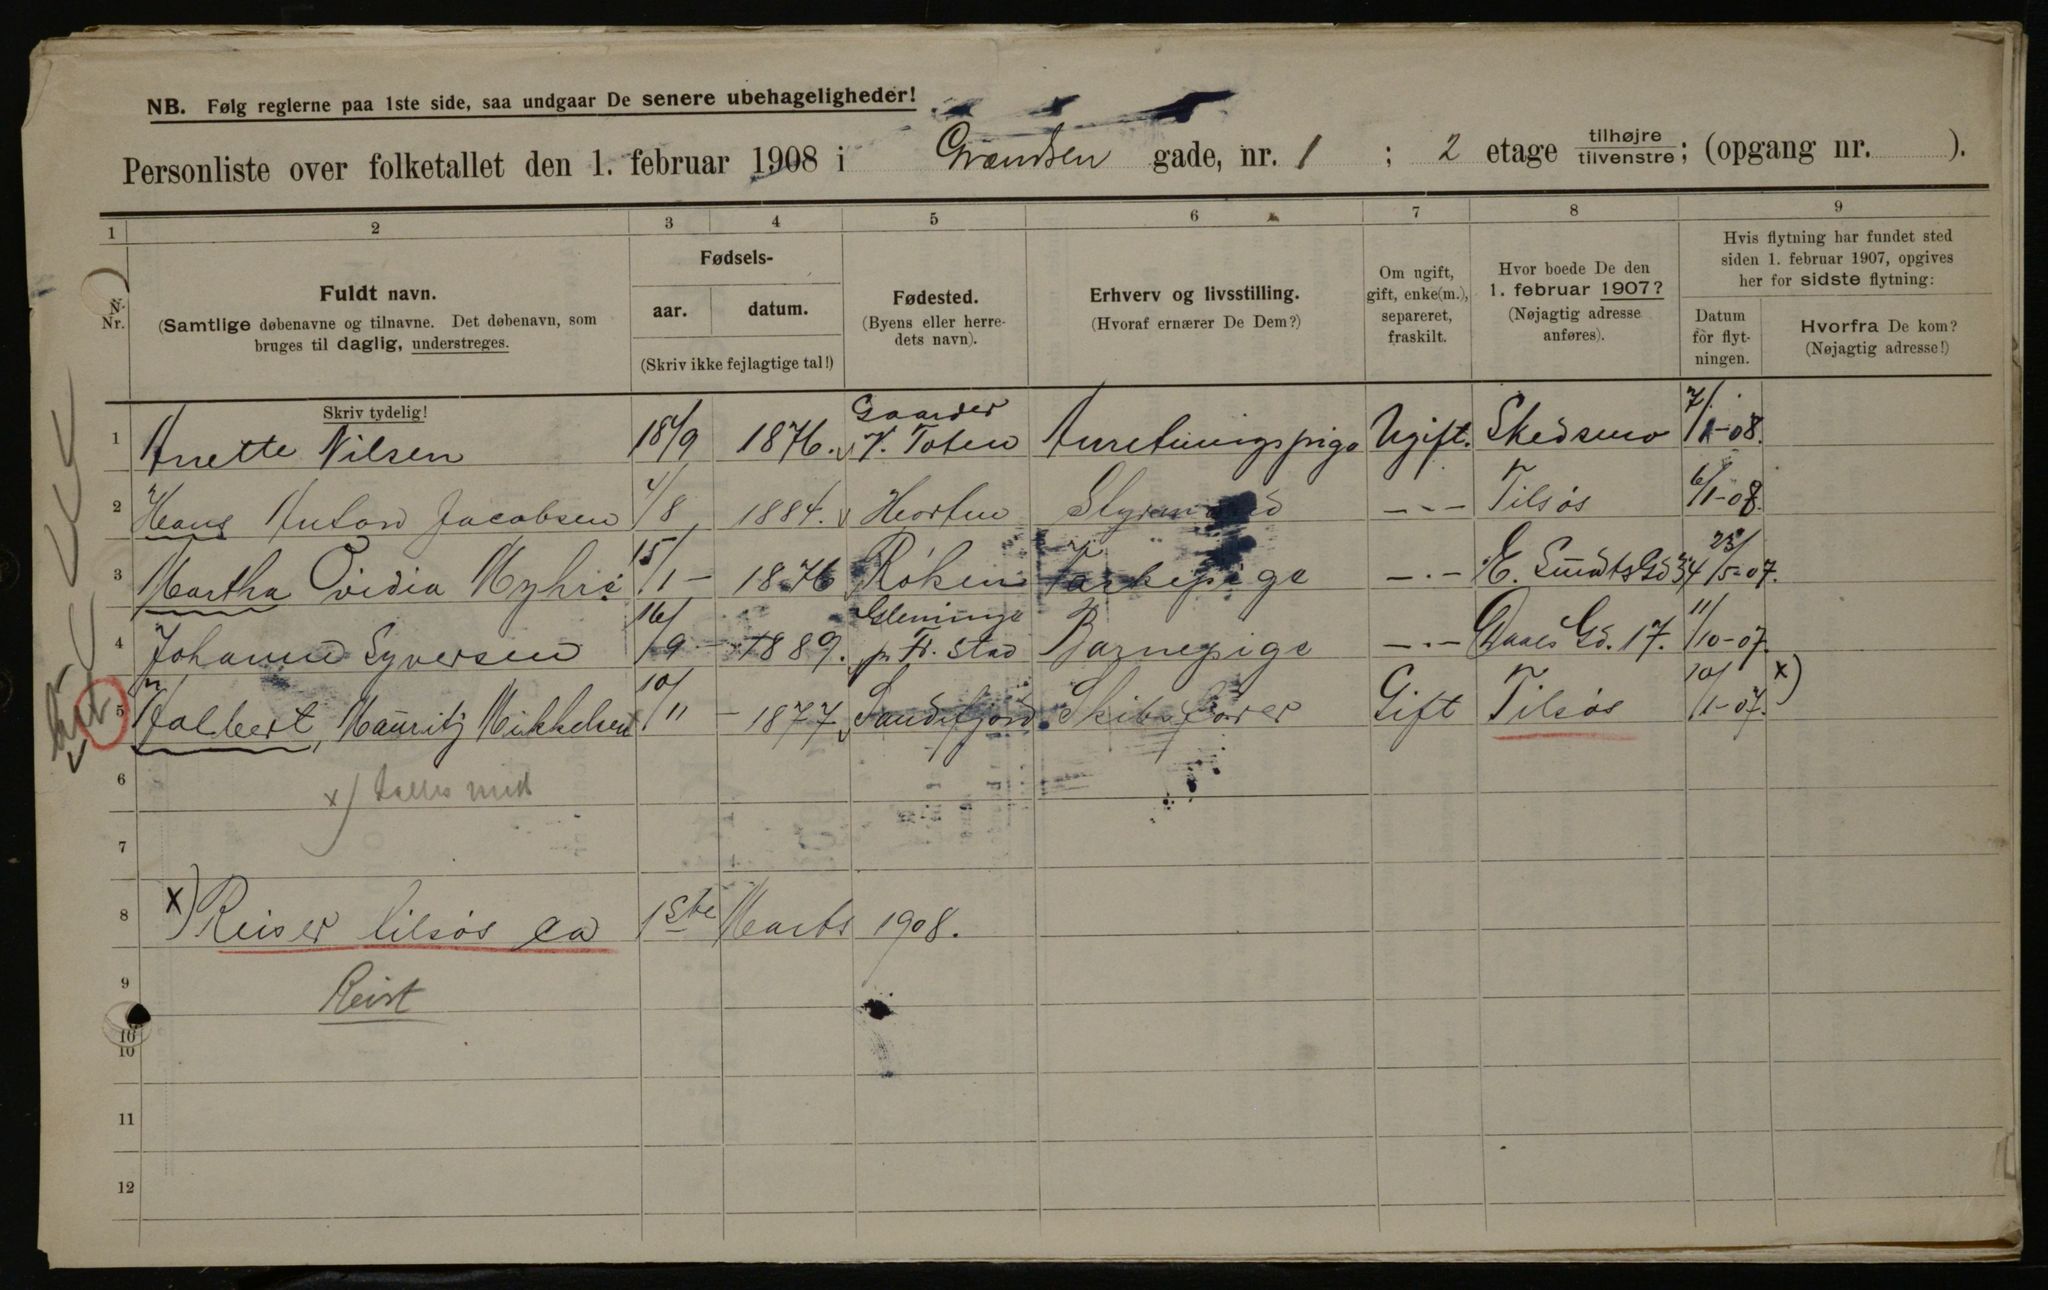 NB. Følg reglerne paa 1ste side, saa undgaar De senere ubehageligheder!
Personliste over folketallet den 1. februar 1908 i Grændsen gade, nr. 1 ; 2 etage tilhøjre tilvenstre; (opgang nr. ).
1 2 3 4 5 6 7 8 9
N. Nr.
Fuldt navn.
(Samtlige døbenavne og tilnavne. Det døbenavn, som
bruges til daglig, understreges.
Skriv tydelig!
Fødsels-
aar. datum.
(Skriv ikke fejlagtige tal!)
Fødested.
(Byens eller herre-
dets navn).
Erhverv og livsstilling.
(Hvoraf ernærer De Dem?)
Om ugift,
gift, enke(m.),
separeret,
fraskilt.
Hvor boede De den
1. februar 1907?
(Nøjagtig adresse
anføres).
Hvis flytning har fundet sted
siden 1. februar 1907, opgives
her for sidste flytning:
Datum
for flyt-
ningen.
Hvorfra De kom?
(Nøjagtig adresse!)
1 Anette Nilsen 18/9 1876. Gaarder V. Toten Anretningspige Ugift. Skedsmo 7/1-08.
2 Hans Anton Jacobsen 4/8 1884. Horten Styrmand - - - Tilsøs 6/1-08.
3 Martha Ovidia Myhre 15/1 - 1876 Røken - - - E. Sundts Gd 34 23/5-07.
4 Johanne Syversen 16/9 - 1889. Glemminge p. Fr. stad Barnepige - - - Daaes Gd. 17. 11/10-07.
5 Halbert, Mauritz Mikkelsen 10/11 - 1877 Sandefjord Skibsfører Gift Tilsøs 10/1-07. x)
6 x) tælles med
7
8 x) Reiser tilsøs ca 1ste Marts 1908.
9 Reist
10
10
11
12